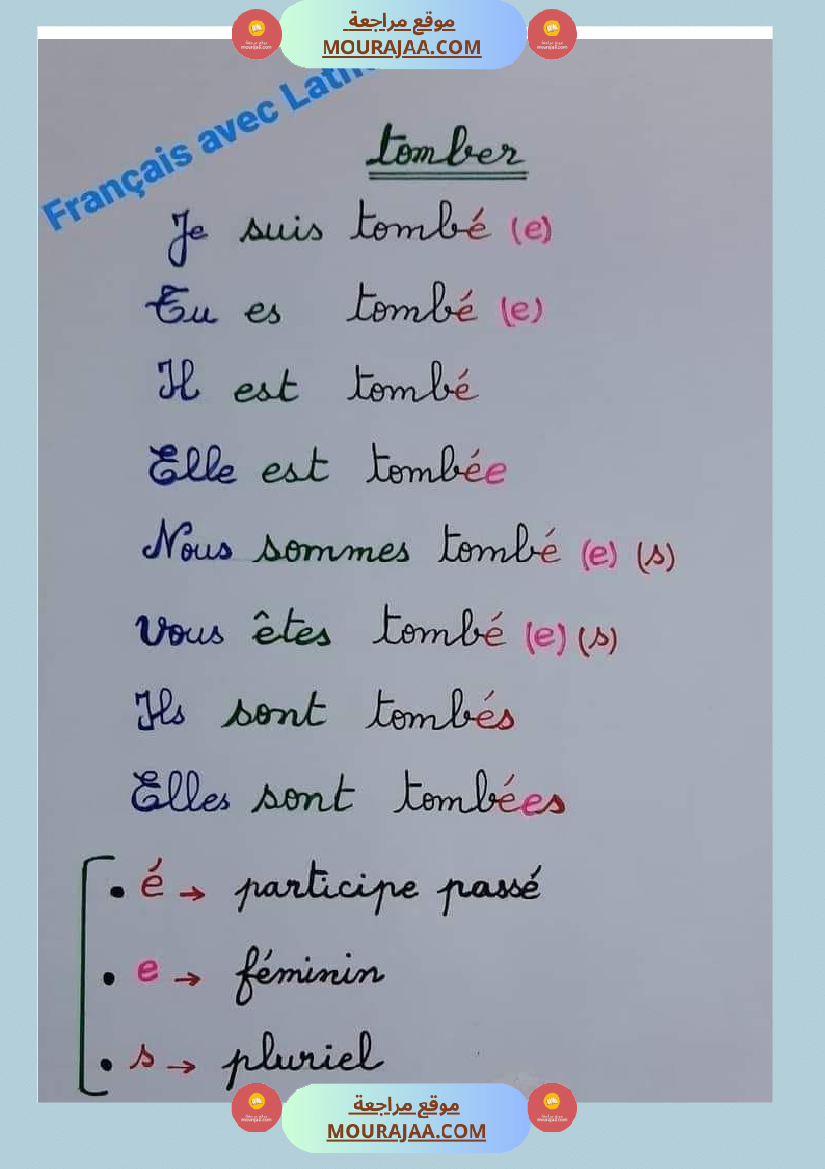 موقع مراجعة
MOURAJAA.COM
Français avec
tomber
Je suis tombé (e)
Tu es tombé (e)
Il est tombé
Elle est tombée
Nous sommes tombé (e) (s)
Vous êtes tombé (e) (s)
Ils sont tombés
Elles sont tombées
• é → participe passé
• e → féminin
• s → pluriel
موقع مراجعة
MOURAJAA.COM